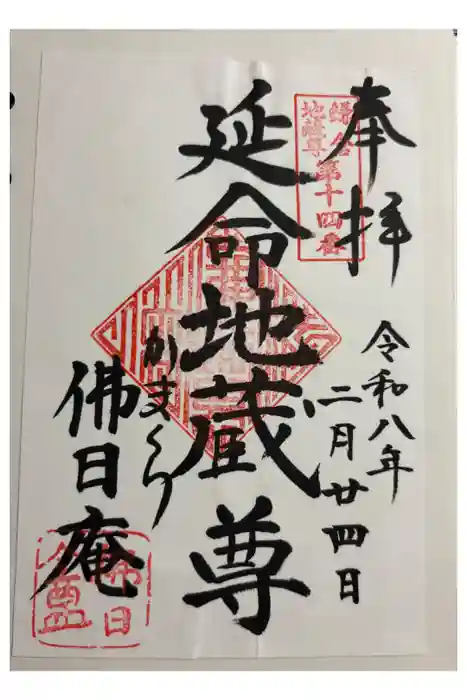 奉拝
鎌倉
地蔵尊
第十四番
令和八年
二月廿四日
延命地蔵尊
かまくら
佛日庵
佛日